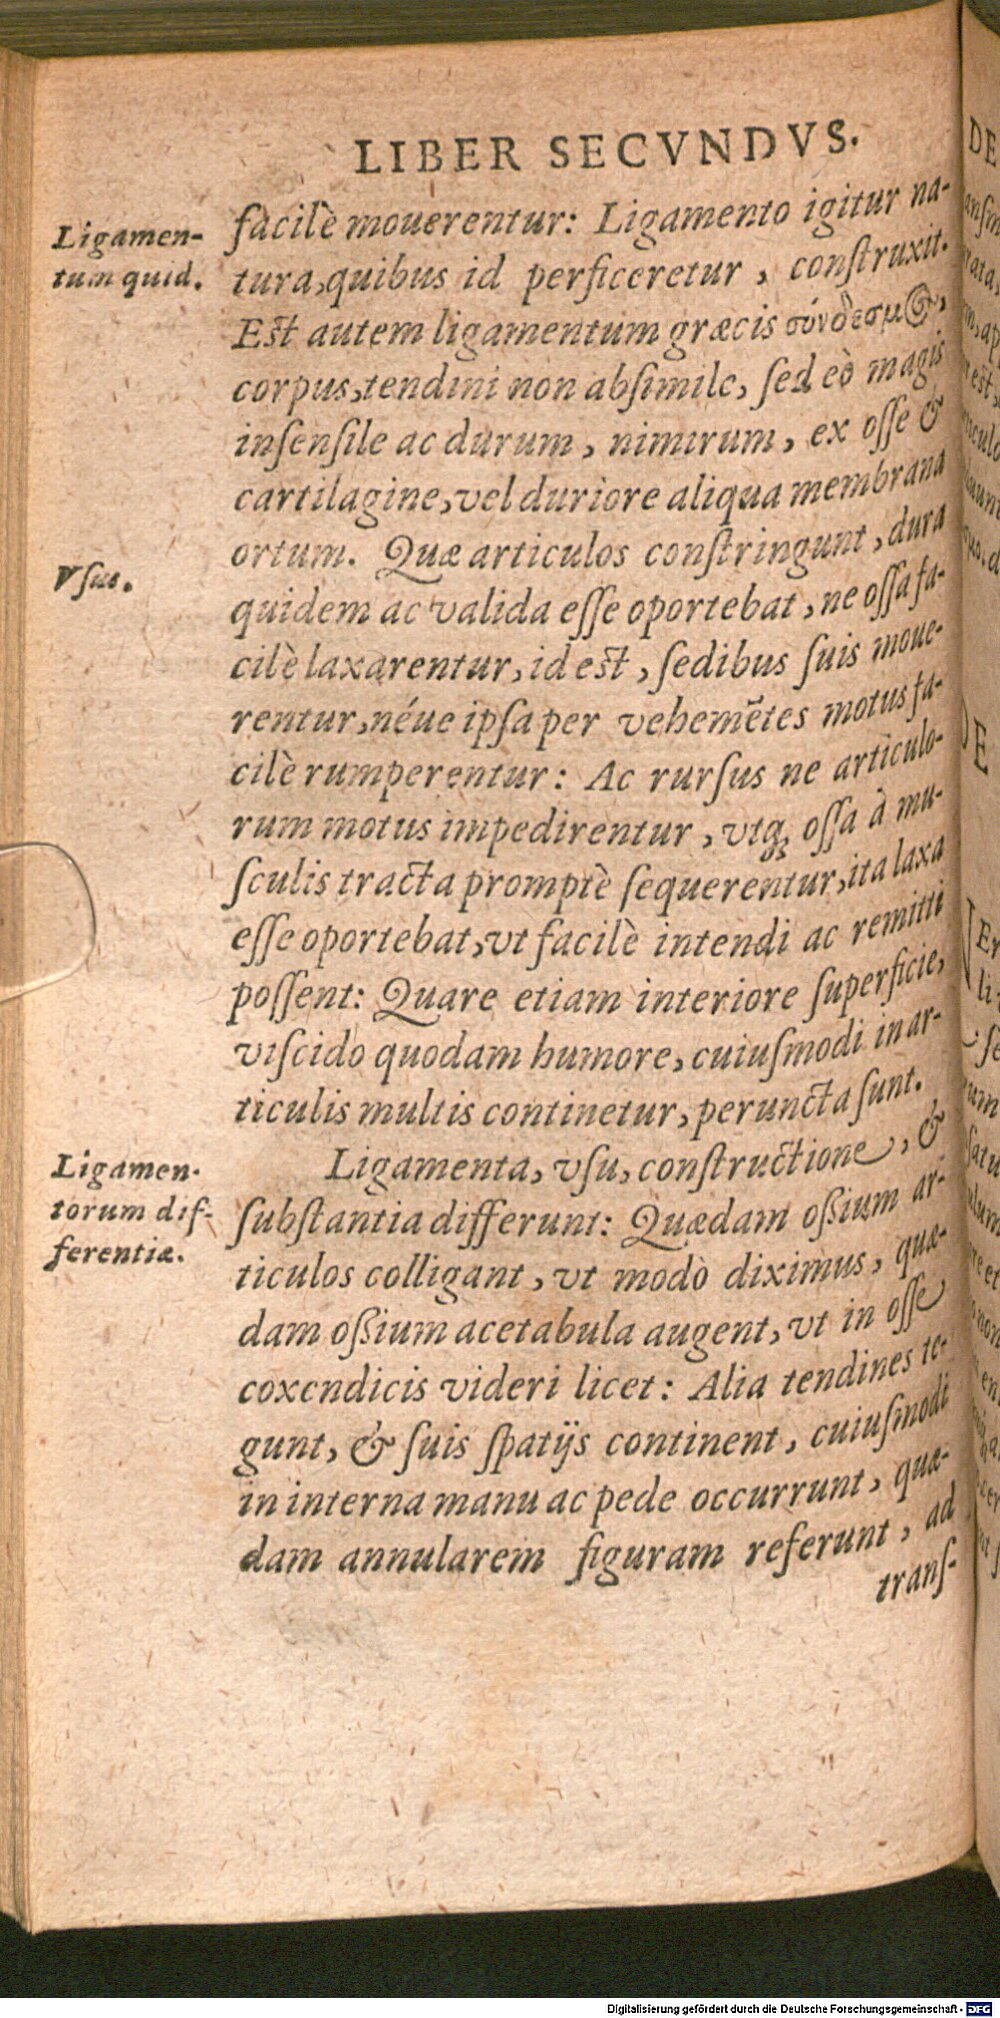 LIBER SECVNDVS.
Ligamen-
tum quid.
facilè mouerentur: Ligamento igitur na-
tura, quibus id perficeretur, construxit.
Est autem ligamentum græcis σύνδεσμος,
corpus, tendini non absimile, sed eò magis
insensile ac durum, nimirum, ex osse &
cartilagine, vel duriore aliqua membrana
ortum. Quæ articulos constringunt, dura
Vsus.
quidem ac valida esse oportebat, ne ossa fa-
cilè laxarentur, id est, sedibus suis moue-
rentur, néue ipsa per vehemẽtes motus fa-
cilè rumperentur: Ac rursus ne articulo-
rum motus impedirentur, vtq; ossa à mu-
sculis tracta promptè sequerentur, ita laxa
esse oportebat, vt facilè intendi ac remitti
possent: Quare etiam interiore superficie,
viscido quodam humore, cuiusmodi in ar-
ticulis multis continetur, peruncta sunt.
Ligamen-
torum dif-
ferentiæ.
Ligamenta, vsu, constructione, &
substantia differunt: Quædam ossium ar-
ticulos colligant, vt modò diximus, quæ-
dam ossium acetabula augent, vt in osse
coxendicis videri licet: Alia tendines te-
gunt, & suis spatijs continent, cuiusmodi
in interna manu ac pede occurrunt, quæ-
dam annularem figuram referunt, ad
trans-
Digitalisierung gefördert durch die Deutsche Forschungsgemeinschaft - DFG